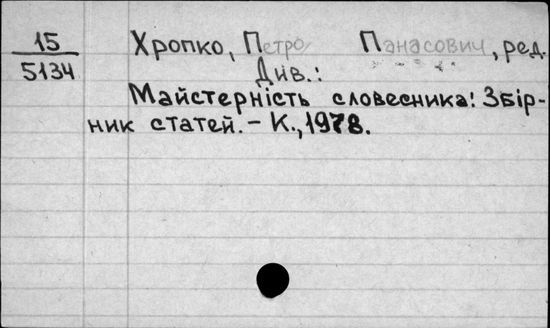 15
5134
Хропко, Петро Панасович, ред.
Див.:
Майстерність словесника: Збір-
ник статей. – К., 1978.